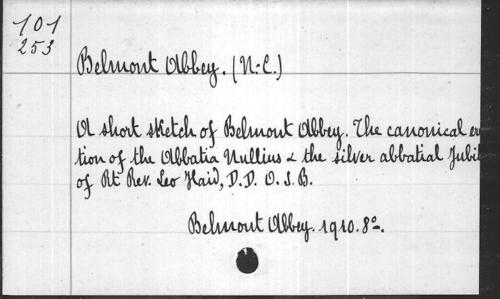 101
253
Belmont Abbey. (N.-C.)
A short sketch of Belmont Abbey. The canonical
tion of the Abbatia Nullius & the silver abbatial Jubi
of Rt Rev. Leo Haid, D.D. O.S.B.
Belmont Abbey. 1910. 8o.